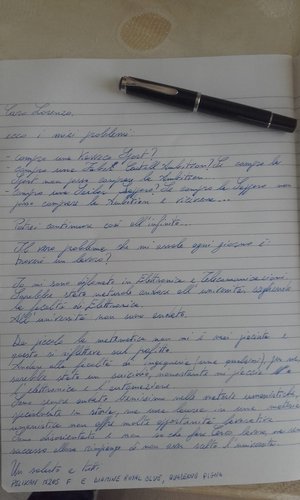 Caro Lorenzo,
ecco i miei problemi:
- compro una Kaweco Sport?
- Compro una Faber Castell Ambition? Se compro la
Sport non posso comprare la Ambition
- Compro una Sailor ? Se compro la non
posso comprare la Ambition e viceversa...
Potrei continuare così all'infinito...
Il vero problema che mi assale ogni giorno è:
troverò un lavoro?
Io mi sono diplomato in Elettronica e Telecomunicazioni
Sarebbe stato naturale andare all'università scegliendo
la facoltà di Elettronica.
All'università non sono andato.
Da piccolo la matematica non mi è mai piaciuta e
questo si rifletteva sul profitto.
Andare alla facoltà di ingegneria (come pensavo), per me
sarebbe stato un suicidio, nonostante mi piaccia
l'elettronica e l'automazione.
Sono sempre andato benissimo nelle materie umanistiche,
specialmente in storia, ma una laurea in una materia
umanistica non offre molte opportunità lavorative
Sono disorientato e non so che fare. Cerco lavoro ma con
scarso
Un saluto a tutti
PELIKAN M205 F E DIAMINE ROYAL BLUE, QUADERNO PIGNA